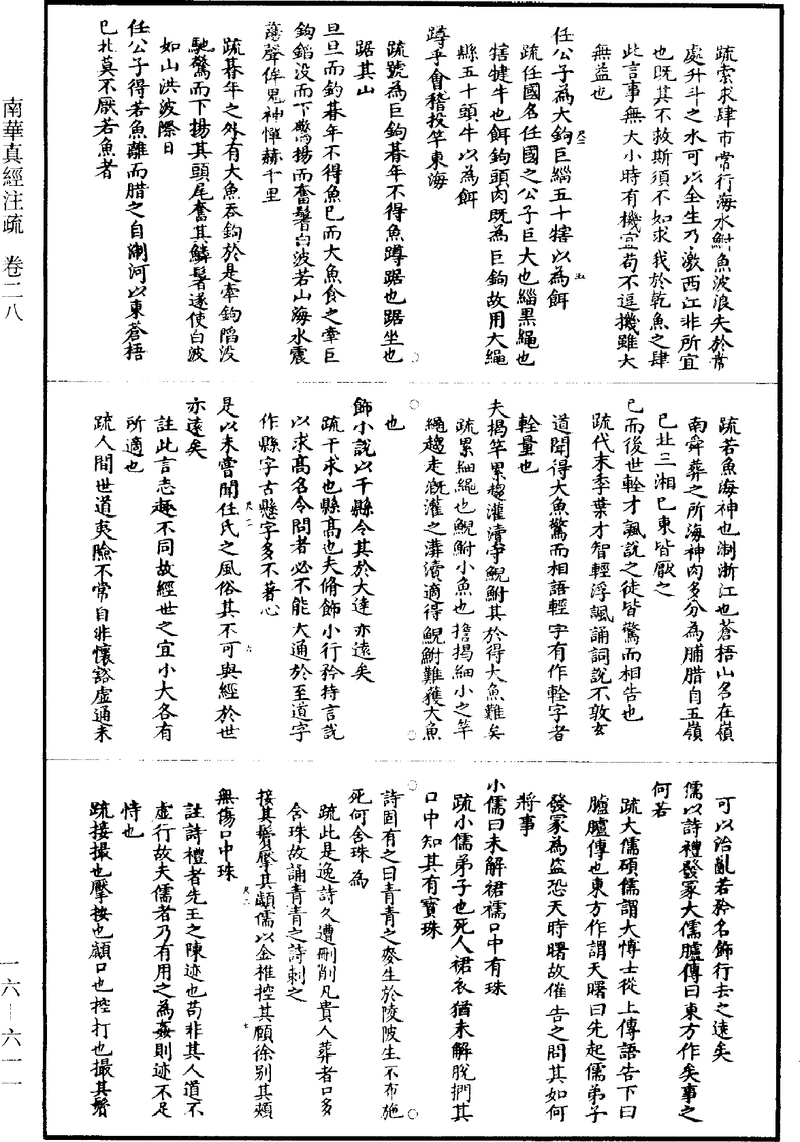 南華真經注疏　卷二八
疏索求肆市常行海水鮒魚波浪失於常
處升斗之水可以全生乃激西江非所宜
也既其不救斯須不如求我於乾魚之肆
此言事無大小時有機宜苟不逗機雖大
無益也
任公子為大鈎巨緇五十犗以為餌
疏任國名任國之公子巨大也緇黑繩也
犗犍牛也餌鈎頭肉既為巨鈎故用大繩
縣五十頭牛以為餌
蹲乎會稽投竿東海
疏號為巨鈎朞年不得魚蹲踞也踞坐也
踞其山
旦旦而釣朞年不得魚已而大魚食之牽巨
鈎錎没而下驚揚而奮鬐白波若山海水震
蕩聲侔鬼神憚赫千里
疏朞年之外有大魚吞鈎於是牽鈎陷没
馳驚而下揚其頭尾奮其鱗鬐遂使白波
如山洪波際日
任公子得若魚離而腊之自淛河以東蒼梧
已北莫不厭若魚者
疏若魚海神也淛浙江也蒼梧山名在嶺
南舜葬之所海神肉多分為脯腊自五嶺
已北三湘已東皆厭之
已而後世輇才諷說之徒皆驚而相告也
疏代末季葉才智輕浮諷誦詞說不敦玄
道聞得大魚驚而相語輕字有作輇字者
輇量也
夫揭竿累趨灌瀆守鯢鮒其於得大魚難矣
疏累細繩也鯢鮒小魚也擔揭細小之竿
繩趨走溉灌之溝瀆適得鯢鮒難獲大魚
也
飾小說以干縣令其於大達亦遠矣
疏干求也縣高也夫脩飾小行矜持言說
以求高名令問者必不能大通於至道字
作縣字古懸字多不著心
是以未嘗聞任氏之風俗其不可與經於世
亦遠矣
註此言志趣不同故經世之宜小大各有
所適也
疏人間世道夷險不常自非懷豁虛通未
可以治亂若矜名飾行去之遠矣
儒以詩禮發冢大儒臚傳曰東方作矣事之
何若
疏大儒碩儒謂大博士從上傳語告下曰
臚臚傳也東方作謂天曙曰先起儒弟子
發冢為盜恐天時曙故催告之問其如何
將事
小儒曰未解裙襦口中有珠
疏小儒弟子也死人裙衣猶未解脫捫其
口中知其有寶珠
詩固有之曰青青之麥生於陵陂生不布施
死何含珠為
疏此是逸詩久遭刪削凡貴人葬者口多
含珠故誦青青之詩刺之
接其鬢擪其顪儒以金椎控其頤徐別其頰
無傷口中珠
註詩禮者先王之陳迹也苟非其人道不
虛行故夫儒者乃有用之為姦則迹不足
恃也
疏接撮也擪按也顪口也控打也撮其鬢
一六—六一一